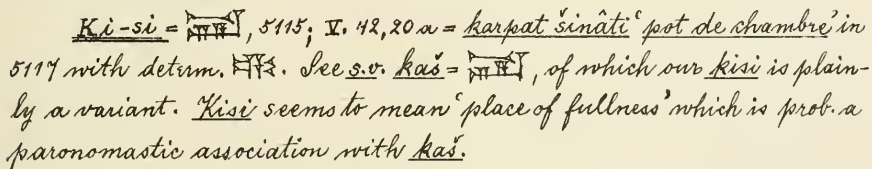 Ki-si = , 5115; V. 42, 20 a = karpat šinâti 'pot de chambre' in
5117 with determ. . See s.v. kaš = , of which our kisi is plain-
ly a variant. Kisi seems to mean 'place of fullness' which is prob. a
paronomastic association with kaš.